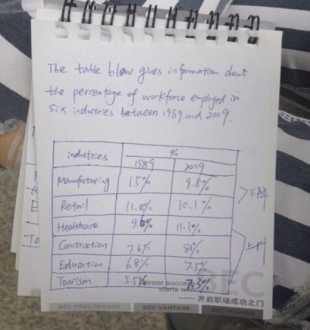 The table blow gives information about
the percentage of workforce employed in
six industries between 1989 and 2009.
industries %
1989 2009
Manufacturing 15% 9.8%
Retail 11.2% 10.1%
Healthcare 9.6% 11.3%
Construction 7.6%
Education 6.8% 7.5%
Tourism 5.5%
下降
上升
BEC
BEC VANTAGE
开启职场成功之门